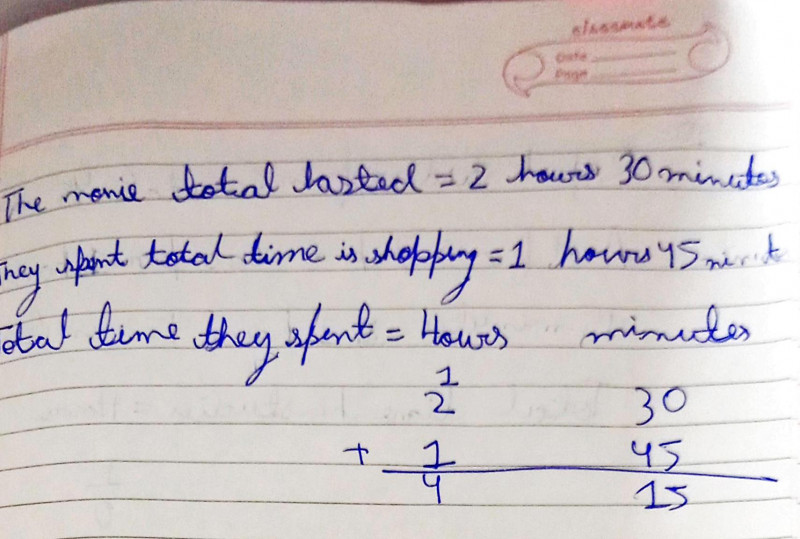 classmate
Date
Page
The movie total lasted = 2 hours 30 minutes
They spent total time is shopping = 1 hours 45
Total time they spent = Hours minutes
1
2 30
+ 1 45
4 15